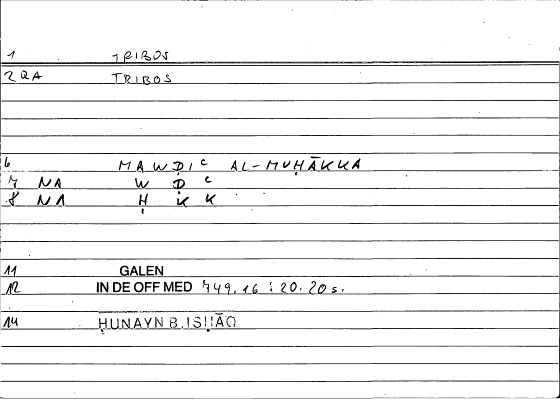 1 TRIBOS
2 QA TRIBOS
6 MAWḌIʿ AL-MUḤĀKKA
7 NA W Ḍ ʿ
8 NA Ḥ K K
11 GALEN
12 IN DE OFF MED 749.16 : 20.20 s.
14 ḤUNAYN B. ISḤĀQ